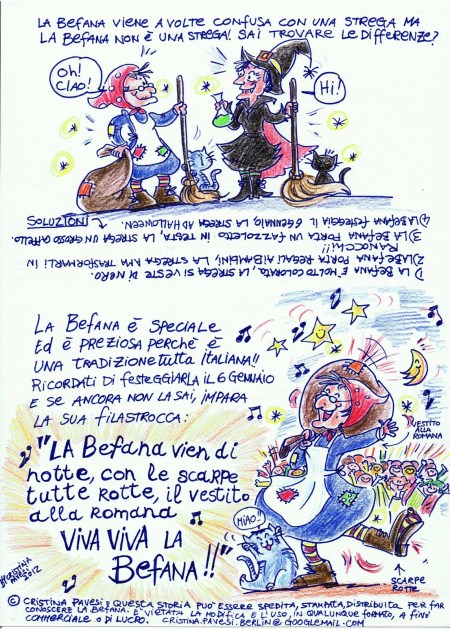 LA BEFANA VIENE A VOLTE CONFUSA CON UNA STREGA MA
LA BEFANA NON È UNA STREGA! SAI TROVARE LE DIFFERENZE?
OH!
CIAO!
Hi!
SOLUZIONI
1) LA BEFANA È MOLTO COLORATA, LA STREGA SI VESTE DI NERO.
2) LA BEFANA PORTA REGALI AI BAMBINI, LA STREGA AMA TRASFORMARLI IN
RANOCCHI!!
3) LA BEFANA PORTA UN FAZZOLETTO IN TESTA, LA STREGA UN GROSSO CAPPELLO.
4) LA BEFANA FESTEGGIA IL 6 GENNAIO, LA STREGA AD HALLOWEEN.
LA BEFANA È SPECIALE
ED È PREZIOSA PERCHÈ È
UNA TRADIZIONE TUTTA ITALIANA!!
RICORDATI DI FESTEGGIARLA IL 6 GENNAIO
E SE ANCORA NON LA SAI, IMPARA
LA SUA FILASTROCCA:
"LA BEFANA VIEN DI
NOTTE, CON LE SCARPE
TUTTE ROTTE, IL VESTITO
ALLA ROMANA
VIVA VIVA LA
BEFANA!!"
VESTITO
ALLA
ROMANA
MIAO!
SCARPE
ROTTE
2012
© CRISTINA PAVESI QUESTA STORIA PUO' ESSERE SPEDITA, STAMPATA, DISTRIBUITA PER FAR
CONOSCERE LA BEFANA. È VIETATA LA MODIFICA E L'USO, IN QUALUNQUE FORMATO, A FINI
COMMERCIALE O DI LUCRO. CRISTINA.PAVESI.BERLIN@GOOGLEMAIL.COM